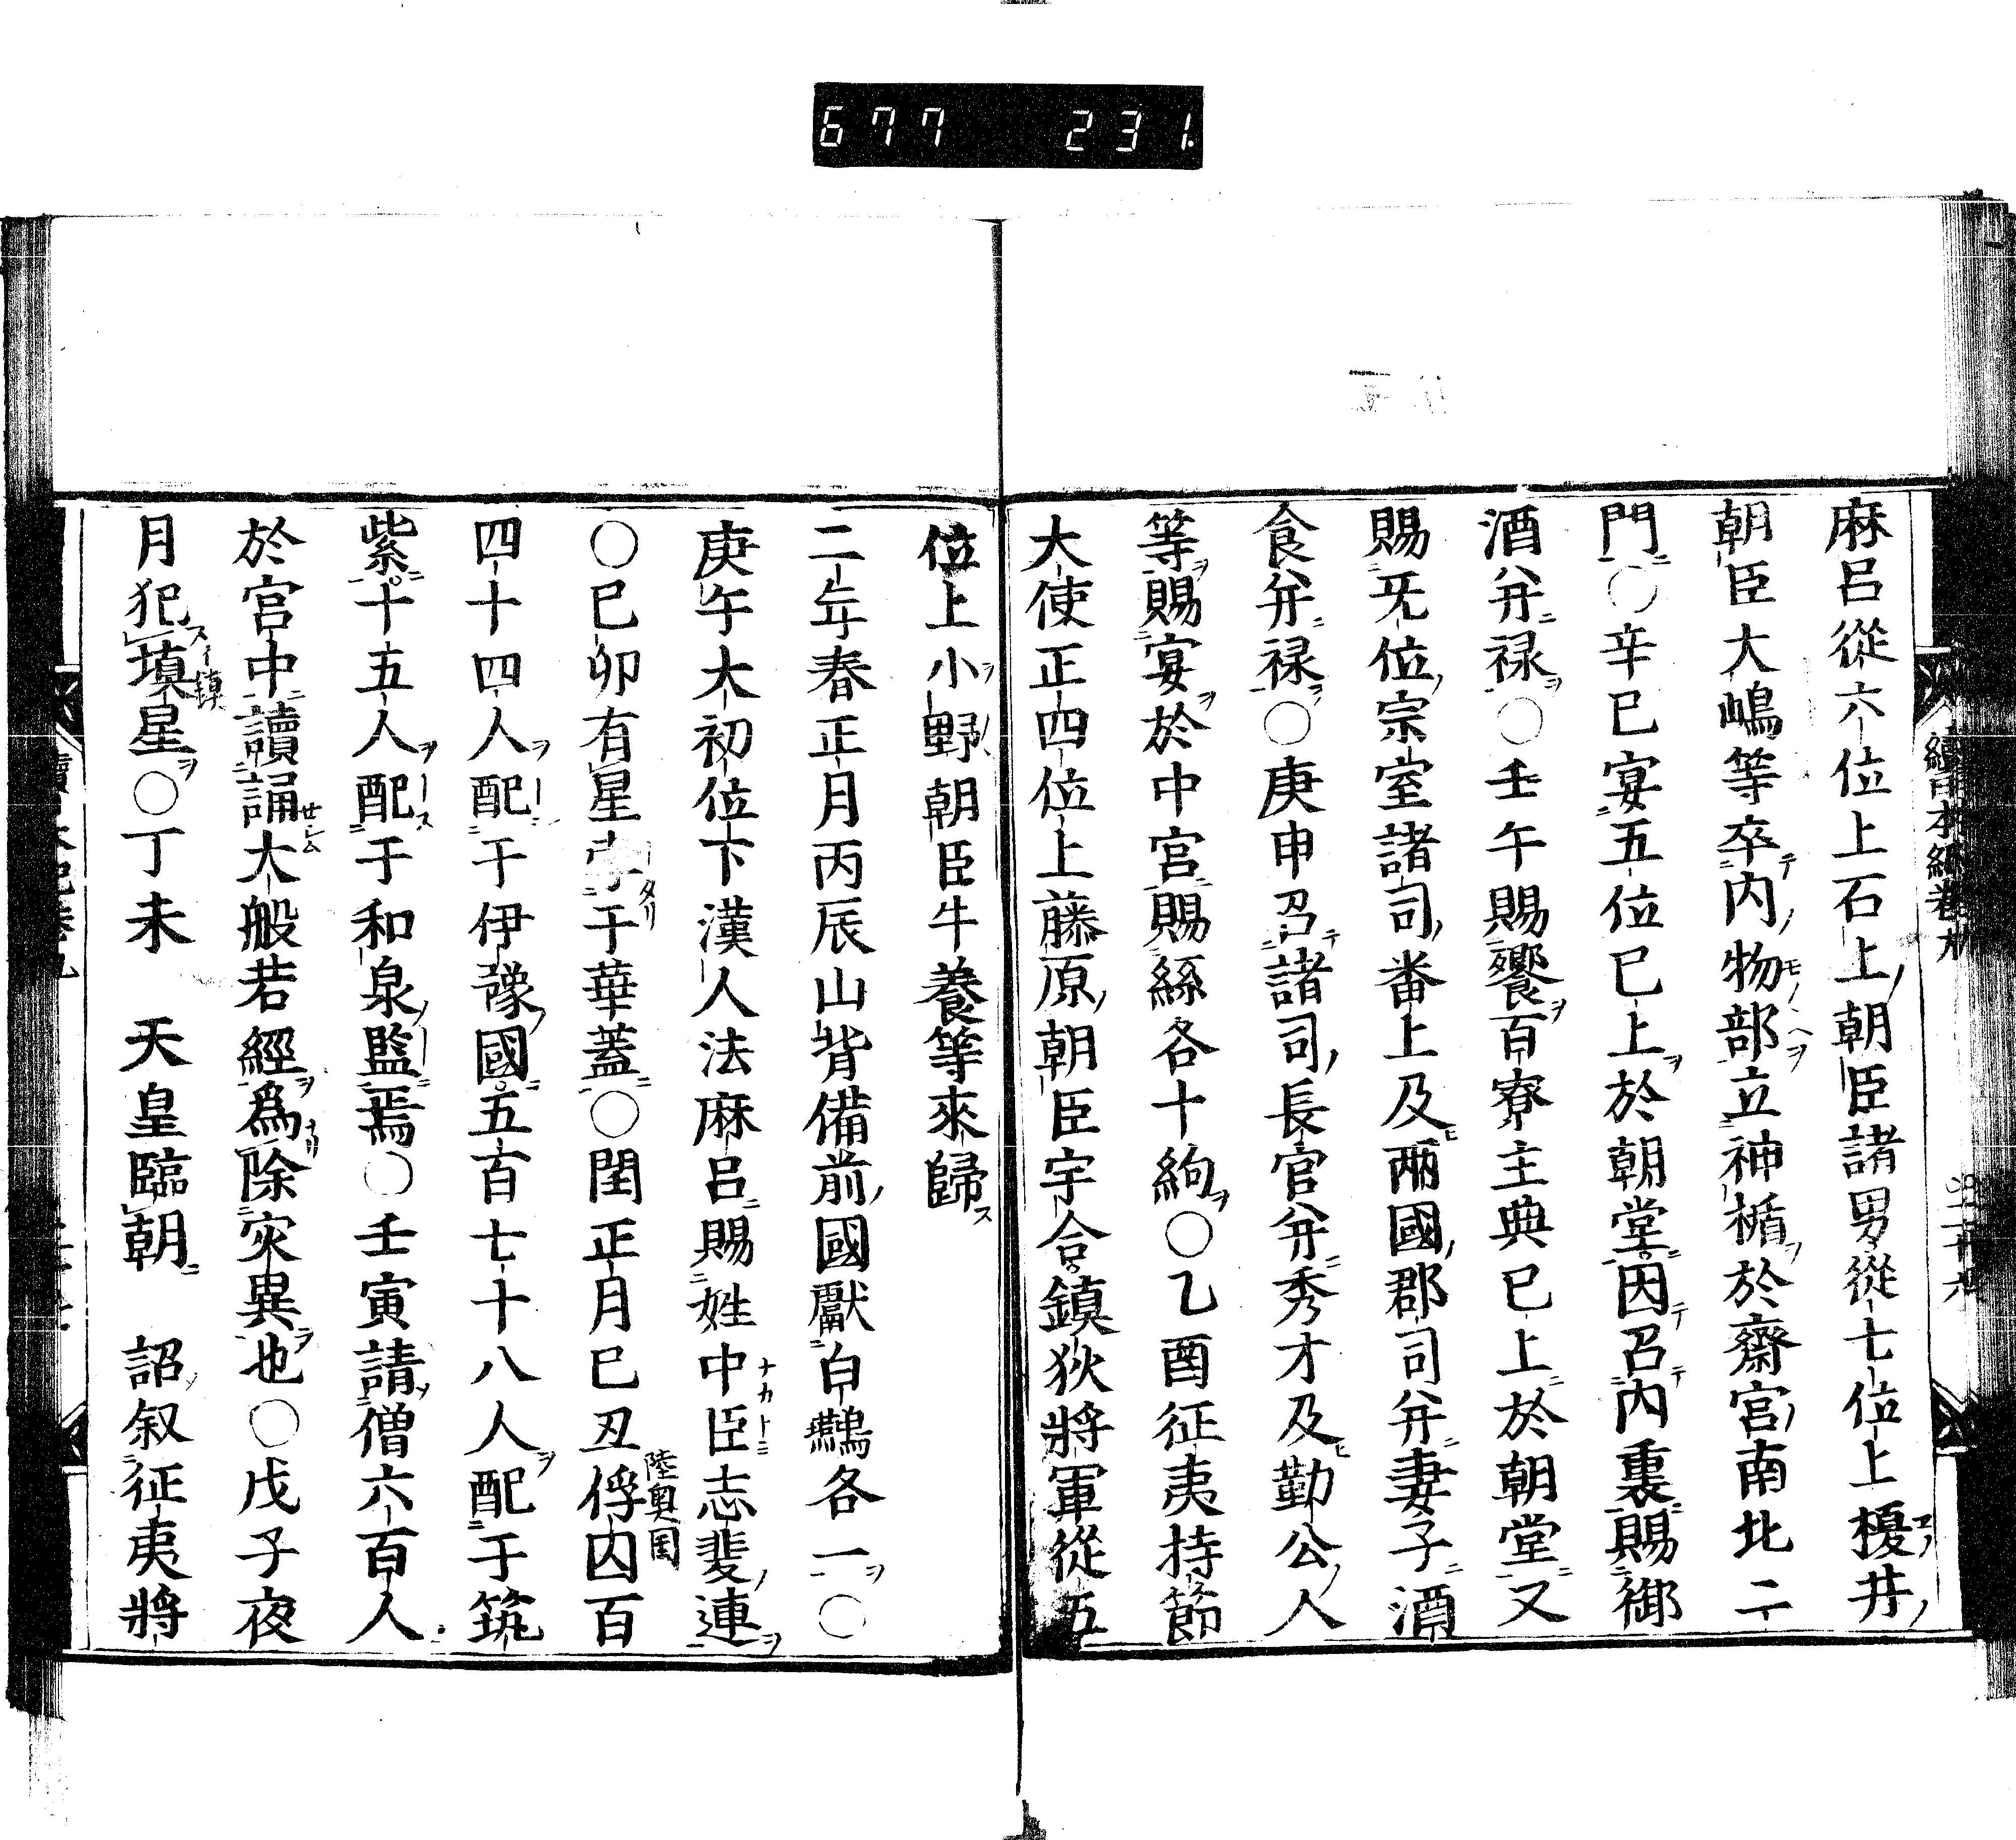 677 231
麻呂從六位上石上朝臣諸男從七位上榎井
朝臣大嶋等卒内物部立神楯於齋宮南北二
門○辛巳宴五位已上於朝堂因召内裏賜御
酒并禄○壬午賜饗百寮主典已上於朝堂又
賜无位宗室諸司番上及兩國郡司并妻子酒
食并禄○庚申召諸司長官并秀才及勤公人
等賜宴於中宮賜絲各十絇○乙酉征夷持節
大使正四位上藤原朝臣宇合鎮狄將軍從五
位上小野朝臣牛養等來歸
二年春正月丙辰山背備前國獻白鷰各一○
庚午大初位下漢人法麻呂賜姓中臣志斐連
○己卯有星孛于華蓋○閏正月己丑俘囚百
陸奥国
四十四人配于伊豫國五百七十八人配于筑
紫十五人配于和泉監焉○壬寅請僧六百人
於宮中讀誦大般若經爲除灾異也○戊子夜
月犯填星○丁未 天皇臨朝 詔叙征夷將
鎮
續日本紀卷九